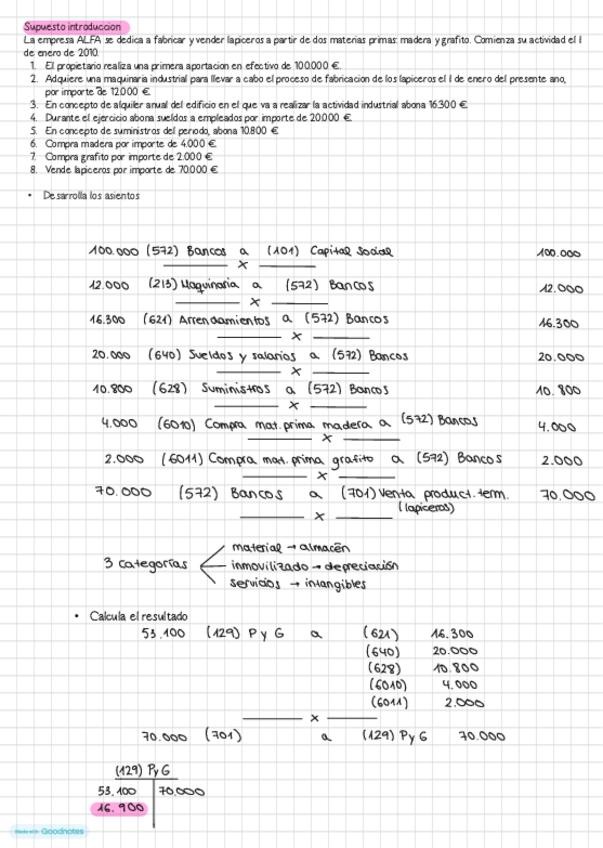 Supuesto introduccion
La empresa ALFA se dedica a fabricar y vender lapiceros a partir de dos materias primas: madera y grafito. Comienza su actividad el 1
de enero de 2010.
1. El propietario realiza una primera aportacion en efectivo de 100.000 €.
2. Adquiere una maquinaria industrial para llevar a cabo el proceso de fabricacion de los lapiceros el 1 de enero del presente ano,
por importe de 12.000 €.
3. En concepto de alquiler anual del edificio en el que va a realizar la actividad industrial abona 16.300 €.
4. Durante el ejercicio abona sueldos a empleados por importe de 20.000 €.
5. En concepto de suministros del periodo, abona 10.800 €
6. Compra madera por importe de 4.000 €.
7. Compra grafito por importe de 2.000 €.
8. Vende lapiceros por importe de 70.000 €
• Desarrolla los asientos
100.000 (572) Bancos a (101) Capital Social 100.000
x
12.000 (213) Maquinaria a (572) Bancos 12.000
x
16.300 (621) Arrendamientos a (572) Bancos 16.300
x
20.000 (640) Sueldos y salarios a (572) Bancos 20.000
x
10.800 (628) Suministros a (572) Bancos 10.800
x
4.000 (6010) Compra mat. prima madera a (572) Bancos 4.000
x
2.000 (6011) Compra mat. prima grafito a (572) Bancos 2.000
x
70.000 (572) Bancos a (701) Venta product. term. 70.000
(lapiceros)
x
material → almacén
3 categorías inmovilizado → depreciación
servicios → intangibles
• Calcula el resultado
53.100 (129) P y G a (621) 16.300
(640) 20.000
(628) 10.800
(6010) 4.000
(6011) 2.000
x
70.000 (701) a (129) P y G 70.000
(129) P y G
53.100 70.000
16.900
Made with Goodnotes